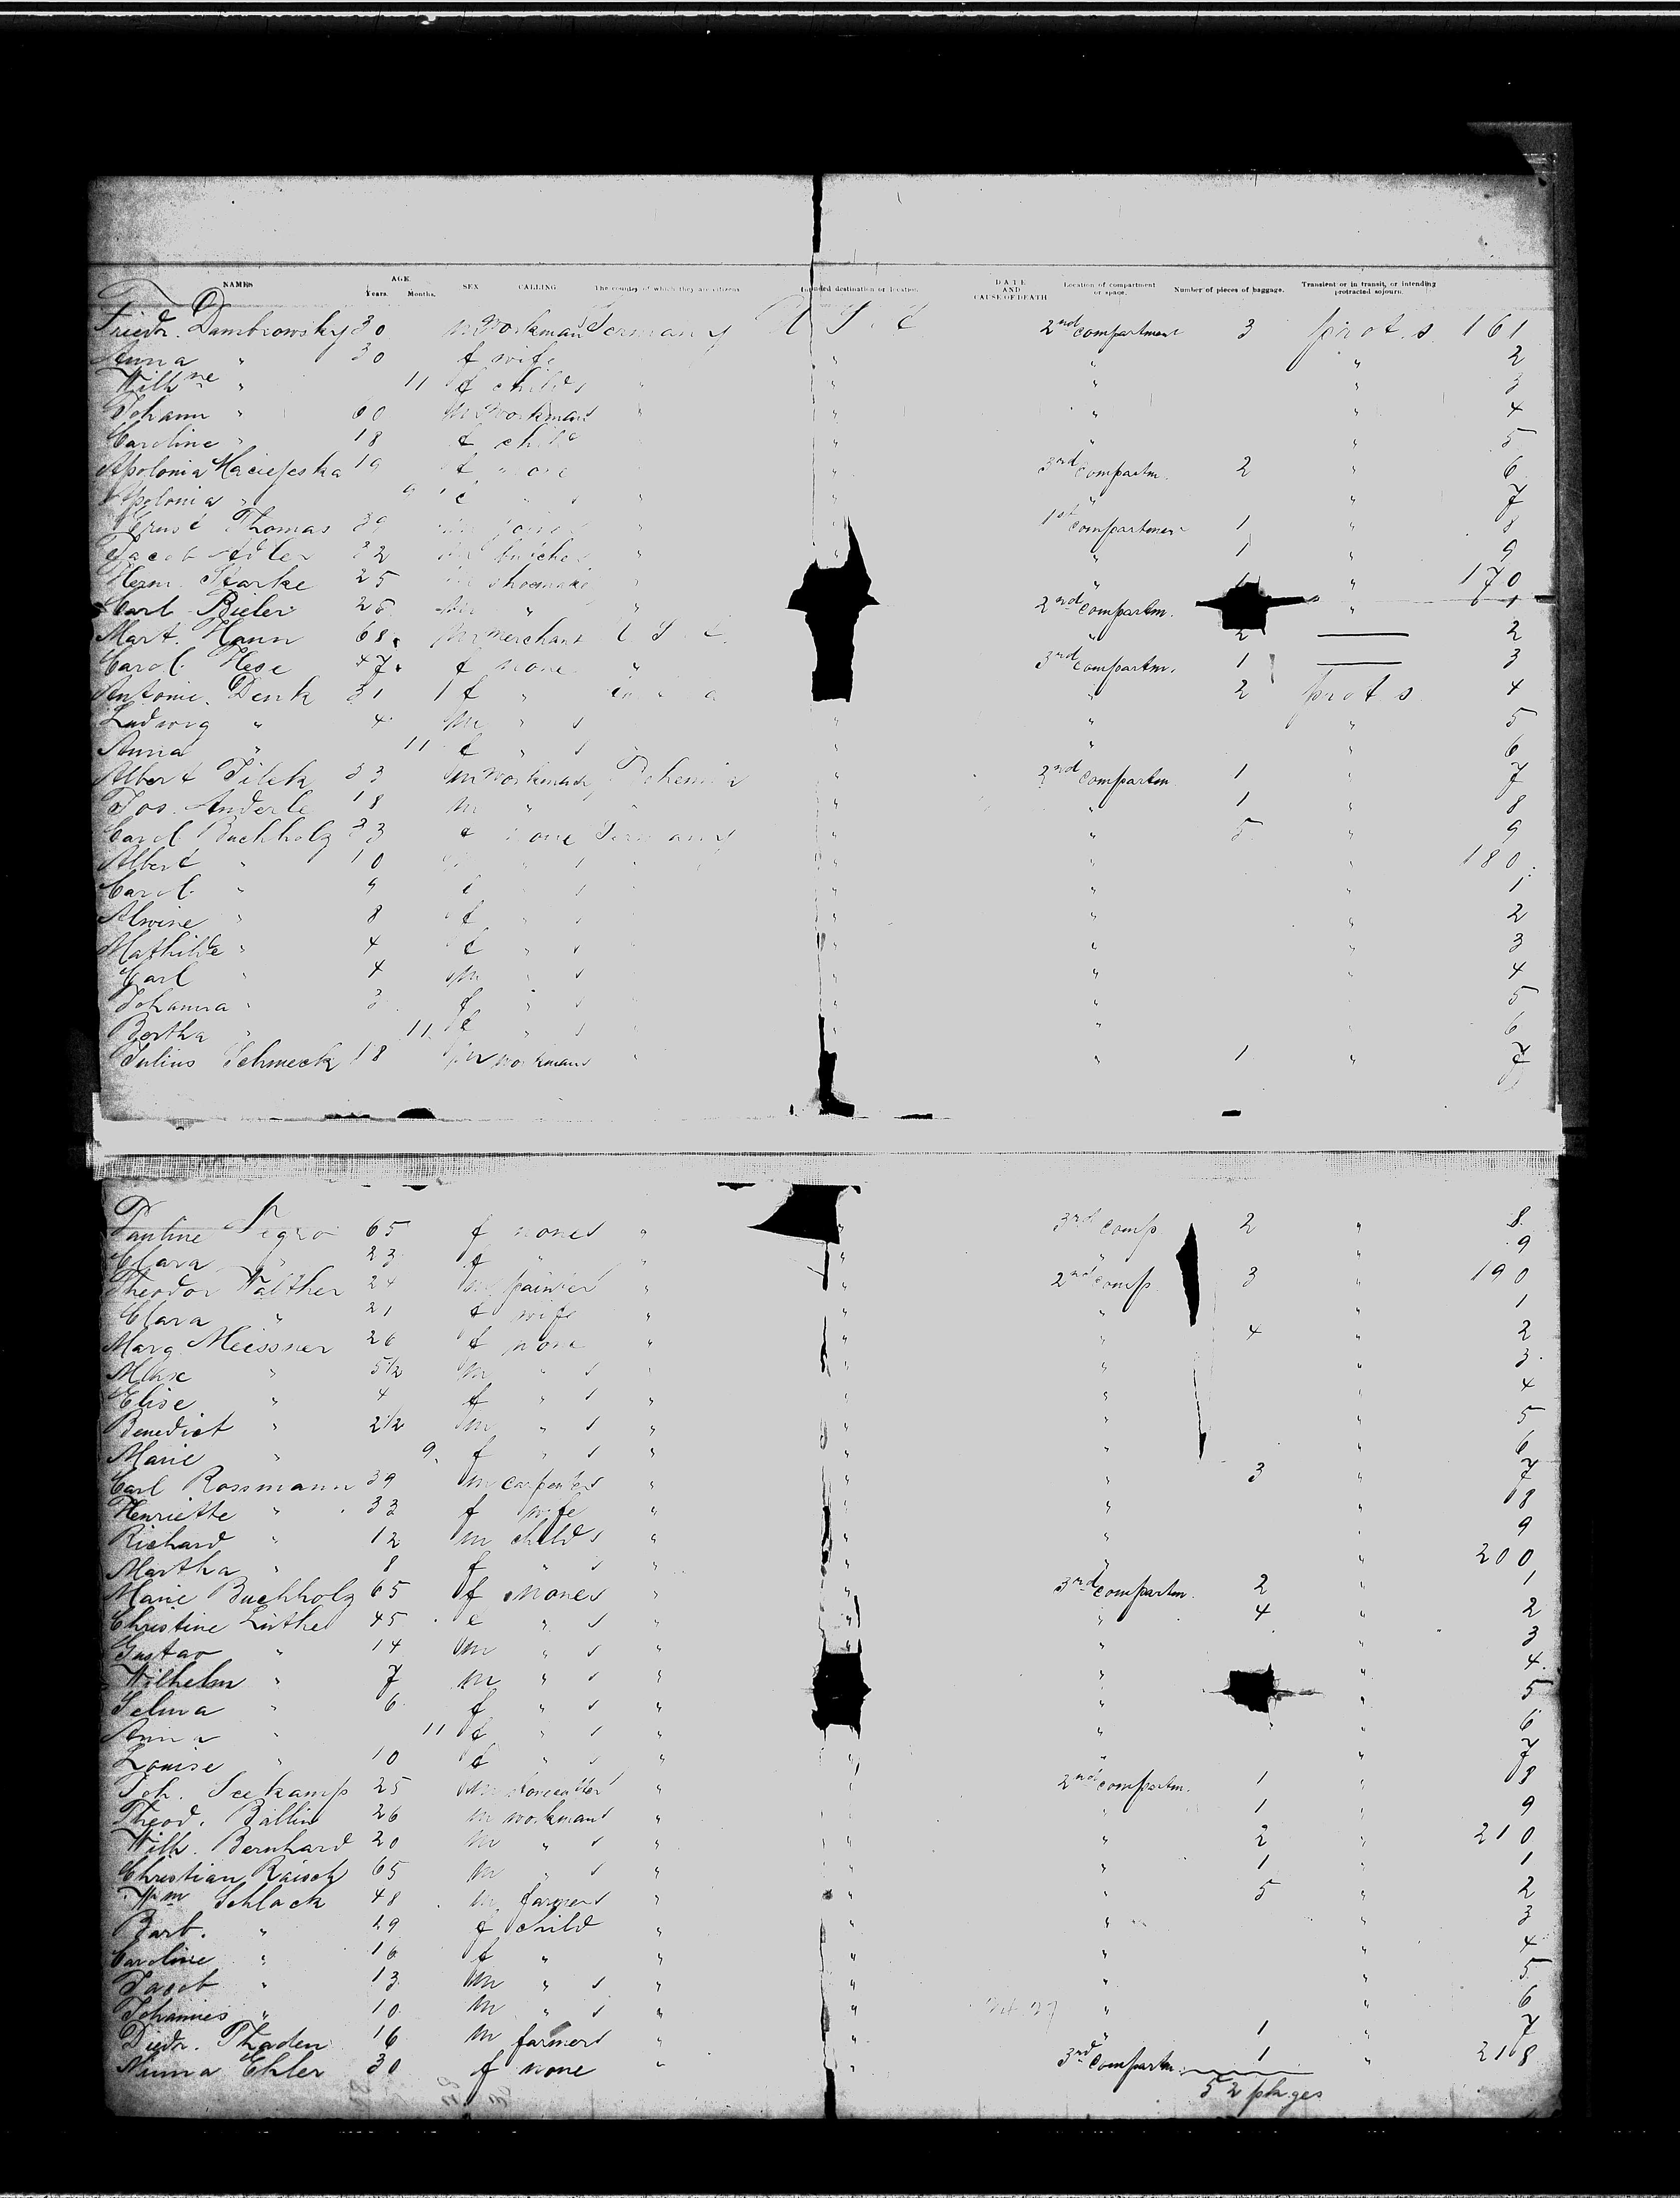 NAMES AGE Years. Months. SEX CALLING The country of which they are citizens Intended destination or location DATE AND CAUSE OF DEATH Location of compartment or space. Number of pieces of baggage. Transient or in transit, or intending protracted sojourn.
Friedr. Dombrowsky 30 m Workman Germany U S A 2nd compartment 3 prot. s. 161
Anna " 30 f wife " " " 2
Wilhne " 11 f child " " " " 3
Johann " 60 m workman " " " " 4
Caroline " 18 f child " " " 5
Apolonia 19 f none " 3rd compartm. 2 " 6
Apolonia " 9 " " " " " 7
Thomas " 1st compartment 1 " 8
Jacob Adler 22 m butcher " " " 1 " 9
Herm. Starke 25 m shoemaker " " " 170
Carl Bieler 25 m " " 2nd compartm. " 1
Mart. Hann 68 m merchant U S A " 2 — 2
Carol. Hese 47 f none " 3rd compartm. 1 — 3
Antonie Denk 31 f " " 2 prot s 4
Ludwig " 4 m " " " " 5
Anna " 11 f " " 6
Albert Tilek 33 m workman Bohemia " 2nd compartm 1 " 7
Jos. Anderle 18 m " " " " 1 " 8
Carol Buchholz 33 f none Germany " " 5 " 9
Albert " 10 m " " " " 180
Carol. " 9 f " " " " 1
Alwine " 8 f " " " " 2
Mathilde " 4 f " " " " 3
Carl " 4 m " " " " 4
Johanna " 3 f " " " " 5
Bertha " 11 f " " " " 6
Julius Schmeck 18 m workman " " " 1 " 7
Pauline 65 f none " " 3rd comp 2 " 8
Clara " 23 f " " " " " 9
Theodor Walther 24 m painter " " 2nd comp 3 " 190
Clara " 21 f wife " " " " 1
Marg Meissner 26 f none " " " 4 " 2
Max " 5 1/2 m " " " " " 3
Elise " 4 f " " " " " 4
Benedict " 2 1/2 m " " " " " 5
Marie " 9 f " " " " " 6
Carl Rossmann 39 m carpenter " " " 3 " 7
Henriette " 33 f wife " " " " 8
Richard " 12 m child " " " " 9
Martha " 8 f " " " " " 200
Marie Buchholz 65 f none " " 3rd compartm. 2 " 1
Christine Luthe 45 f " " " " 4 " 2
Gustav " 14 m " " " " " 3
Wilhelm " 7 m " " " " 4
Selma " 6 f " " " " 5
Anna " 11 f " " " " 6
Louise " 10 f " " " " " 7
Joh. Seekamp 25 m " 2nd compartm. 1 " 8
Theod. Ballin 26 m workman " " " 1 " 9
Wilh. Bernhard 20 m " " " " 2 " 210
Christian Raisch 65 m " " " " 1 " 1
Wm Schlack 48 m farmer " " " 5 " 2
Barb. " 19 f child " " " " 3
Caroline " 16 f " " " " " 4
Jacob " 13 m " " " " " 5
Johannes " 10 m " " " " " 6
Diedr. Thaden 16 m farmer " " " 1 " 7
Ehler 30 f none " " 3rd compartm. 1 " 218
52 pkges